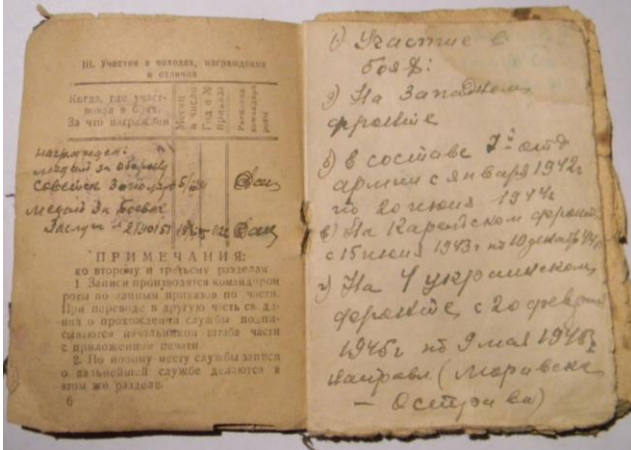 III. Участие в походах, награждения
и отличия
Когда, где участ-
вовал в боях.
За что награжден
Месяц
и число
Год и №
приказа
Награжден:
медаль за оборону
Советск. Заполяр
медаль За боевые
Заслуги №
ПРИМЕЧАНИЯ:
ко второму и третьему разделам
1 Записи производятся командиром
роты по данным приказов по части.
При переводе в другую часть све-
дения о прохождении службы подпи-
сываются начальником штаба части
с приложением печати.
2. По новому месту службы записи
о дальнейшей службе делаются в
этом же разделе.
6
1) Участие в
боях:
а) На Западном
фронте
б) в составе 7й отд
армии с января 1942г
по 20 июня 1944г
в) На Карельском фронте
с 15 июня 1943г по 10 декабр 44г
г) На 4 украинском
фронте с 20 февраля
1945г по 9 мая 1945г
направл. (Моравска
– Острава)